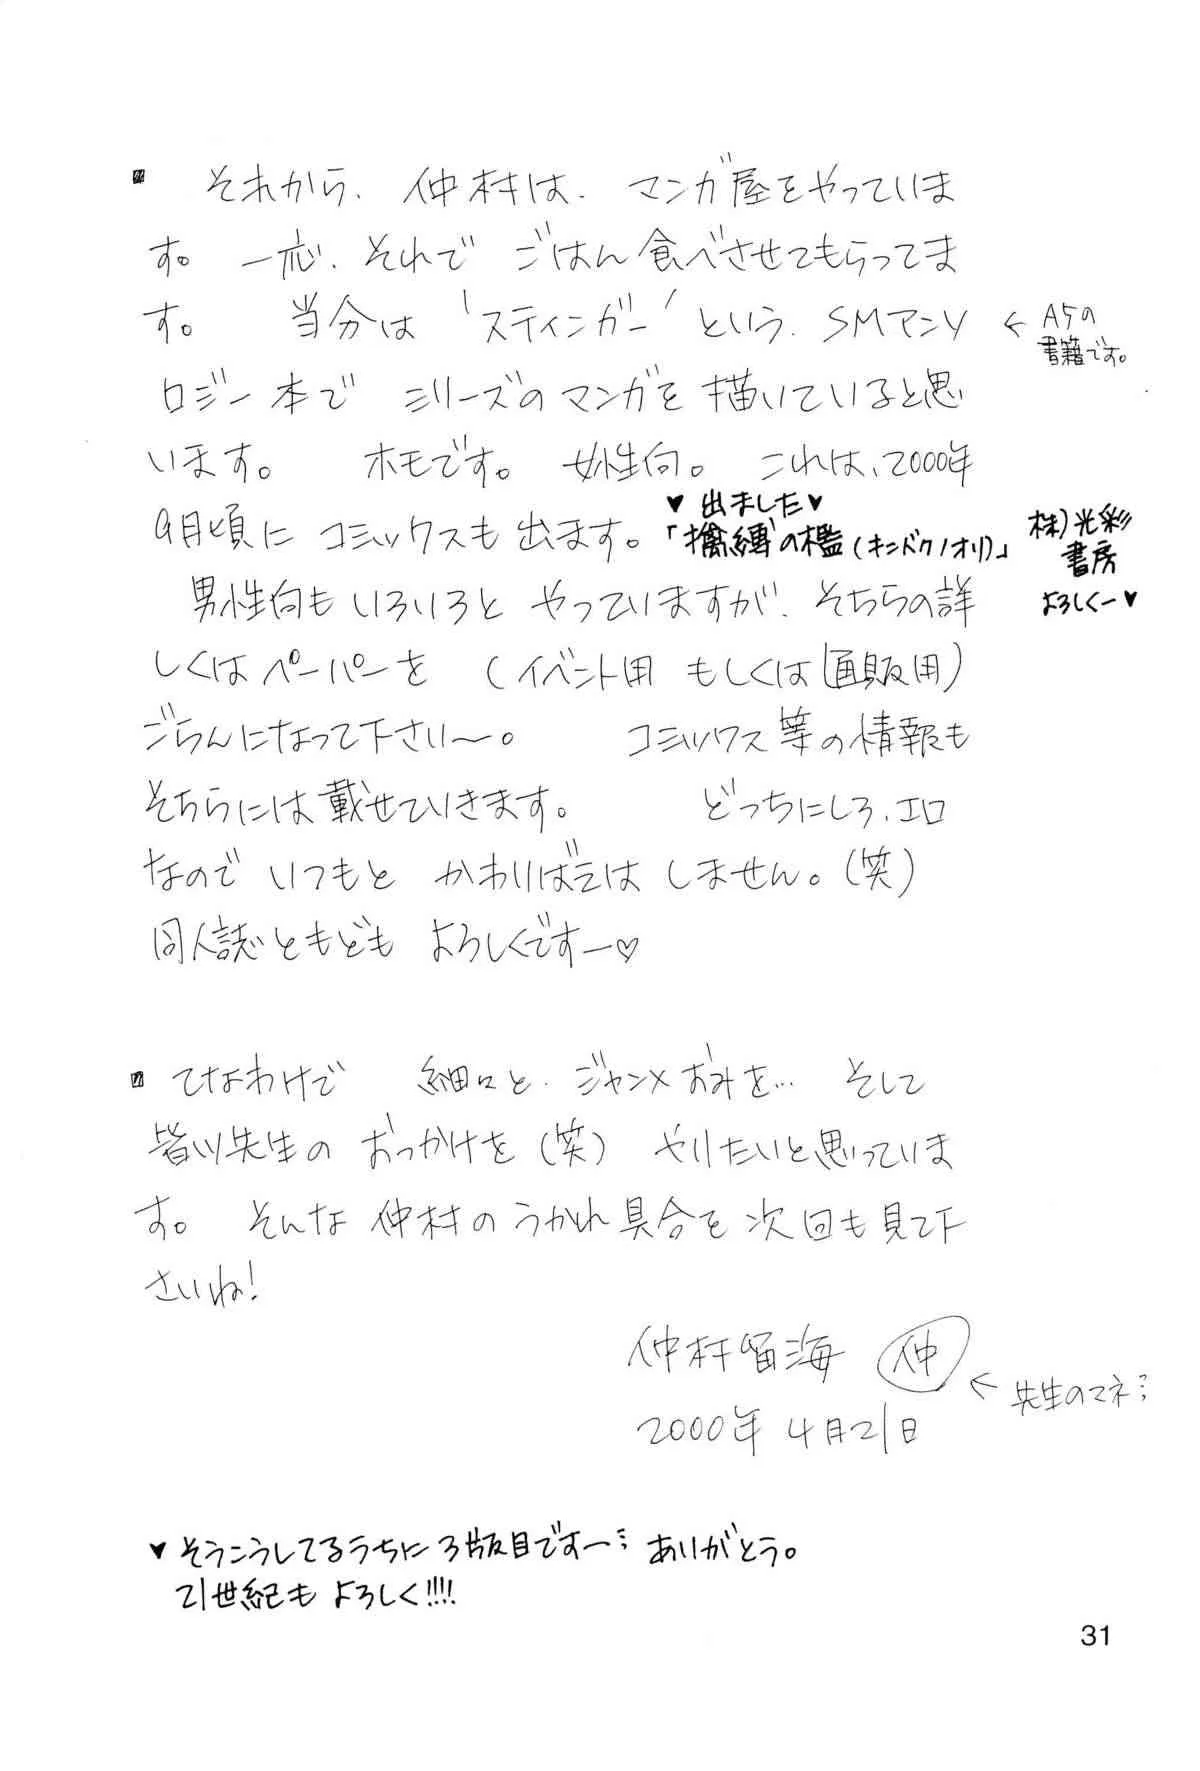 それから、仲村は、マンガ屋をやっていま
す。一応、それで ごはん食べさせてもらってま
す。 当分は 'スティンガー' という、SMアンソ
← A5の
書籍です。
ロジー本で シリーズのマンガを描いていると思
います。 ホモです。 女性向。 これは、2000年
♥ 出ました♥
9月頃に コミックスも出ます。
「擒縛の檻(キンバクノオリ)」
株)光彩
書房
よろしくー♥
男性向もいろいろと やっていますが、そちらの詳
しくはペーパーを (イベント用 もしくは通販用)
ごらんになって下さい〜。 コミックス等の情報も
そちらには載せていきます。 どっちにしろ、エロ
なので いつもと かわりばえは しません。(笑)
同人誌ともども よろしくですー♡
てなわけで 細々と、ジャン×おみを… そして
皆川先生の おっかけを(笑) やりたいと思っていま
す。 そんな 仲村のうかれ具合を次回も見て下
さいね!
仲村留海 仲
← 先生のマネ…
2000年4月21日
♥ そうこうしてるうちに3版目ですー… ありがとう。
21世紀も よろしく!!!!
31